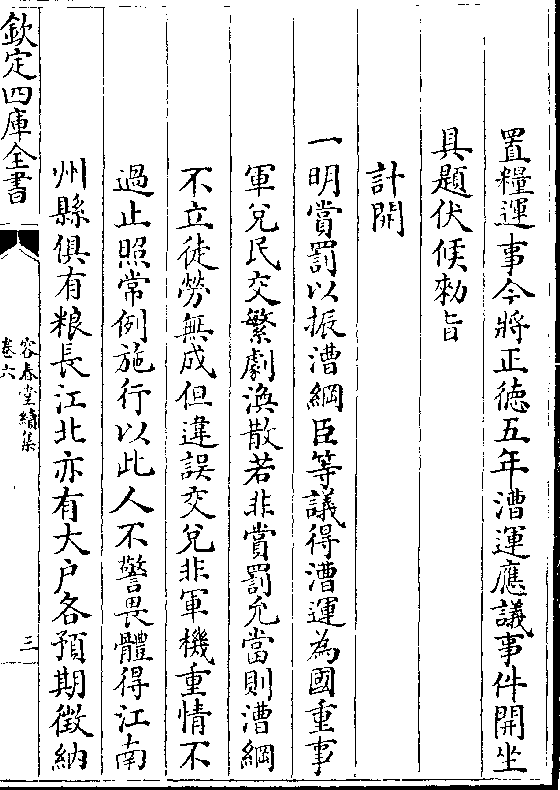 置糧運事今將正徳五年漕運應議事件開坐
具題伏候勅旨
計開
一明賞罰以振漕綱臣等議得漕運為國重事
軍兌民交繁劇渙散若非賞罰允當則漕綱
不立徒勞無成但違誤交兌非軍機重情不
過止照常例施行以此人不警畏體得江南
州縣俱有粮長江北亦有大户各預期徴納
欽定四庫全書
容春堂續集
卷六
三